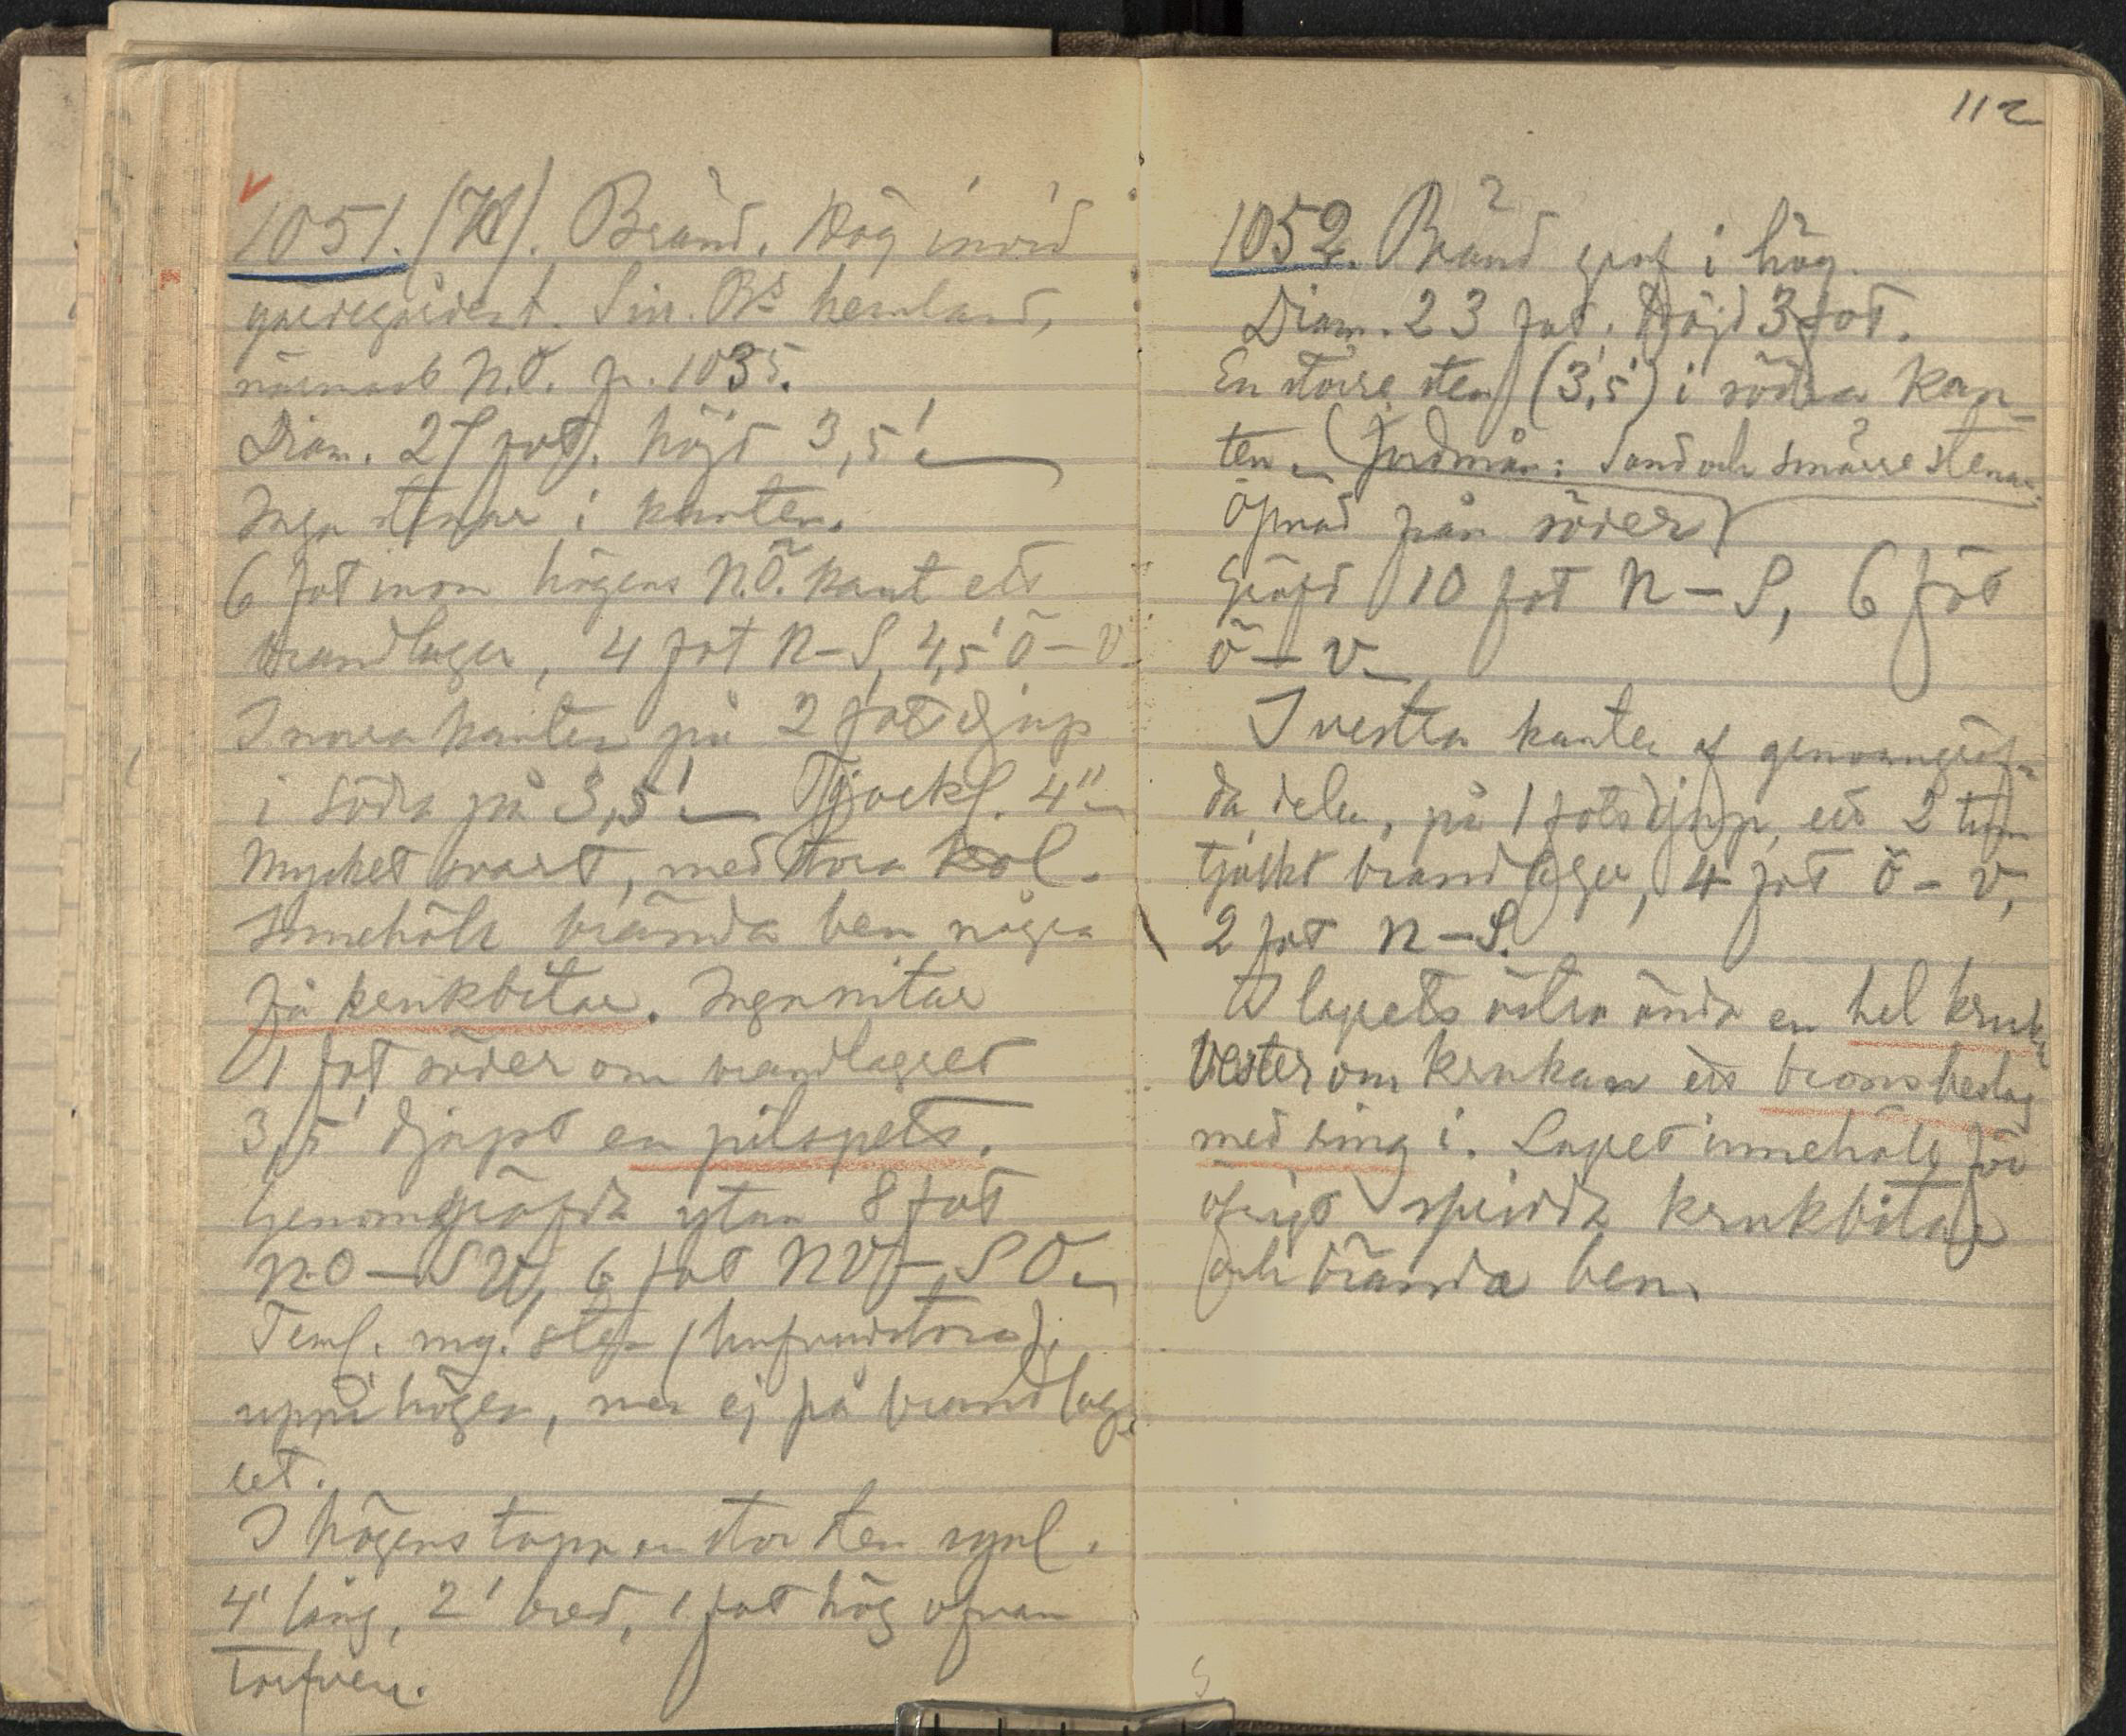 1051. (Hl). Bränd. Hög invid
gärdesgården t. Sin. Bs hemland,
närmast N.Ö. fr. 1035.
Diam. 27 fot. höjd 3,5'
Inga stenar i kanten.
6 fot inom högens N.Ö. kant ett
brandlager, 4 fot N-S, 4,5' Ö-V.
I norra kanten på 2 fots djup
i södra på 3,5' Tjockl. 4"
Mycket svart, med stora kol.
Innehöll brända ben några
få krukbitar. Inga nitar
1 fot söder om brandlagret
3,5' djupt en pilspets.
Genomgräfda ytan 8 fot
NO-SV, 6 fot NV-SO
Teml. mg. sten (hufvudstora)
uppi högen, men ej på brandlag-
ret.
I högens topp en stor sten synl.
4' lång, 2' bred, 1 fot hög ofvan
torfven.
112
1052. Bränd graf i hög.
Diam. 23 fot. Höjd 3 fot.
En större sten (3,5') i södra kan-
ten. (Jordmån: Sand och smärre stenar.
Öpnad från söder
Gräfd 10 fot N-S, 6 fot
Ö-V.
I vestra kanten af genomgräf-
da delen, på 1 fots djup, ett 2 tum
tjockt brandlager, 4 fot Ö-V,
2 fot N-S.
I lagrets östra ända en hel kruka
Vester om krukan ett bronsbeslag
med ring i. Lagret innehöll för
öfrigt spridda krukbitar
och brända ben.